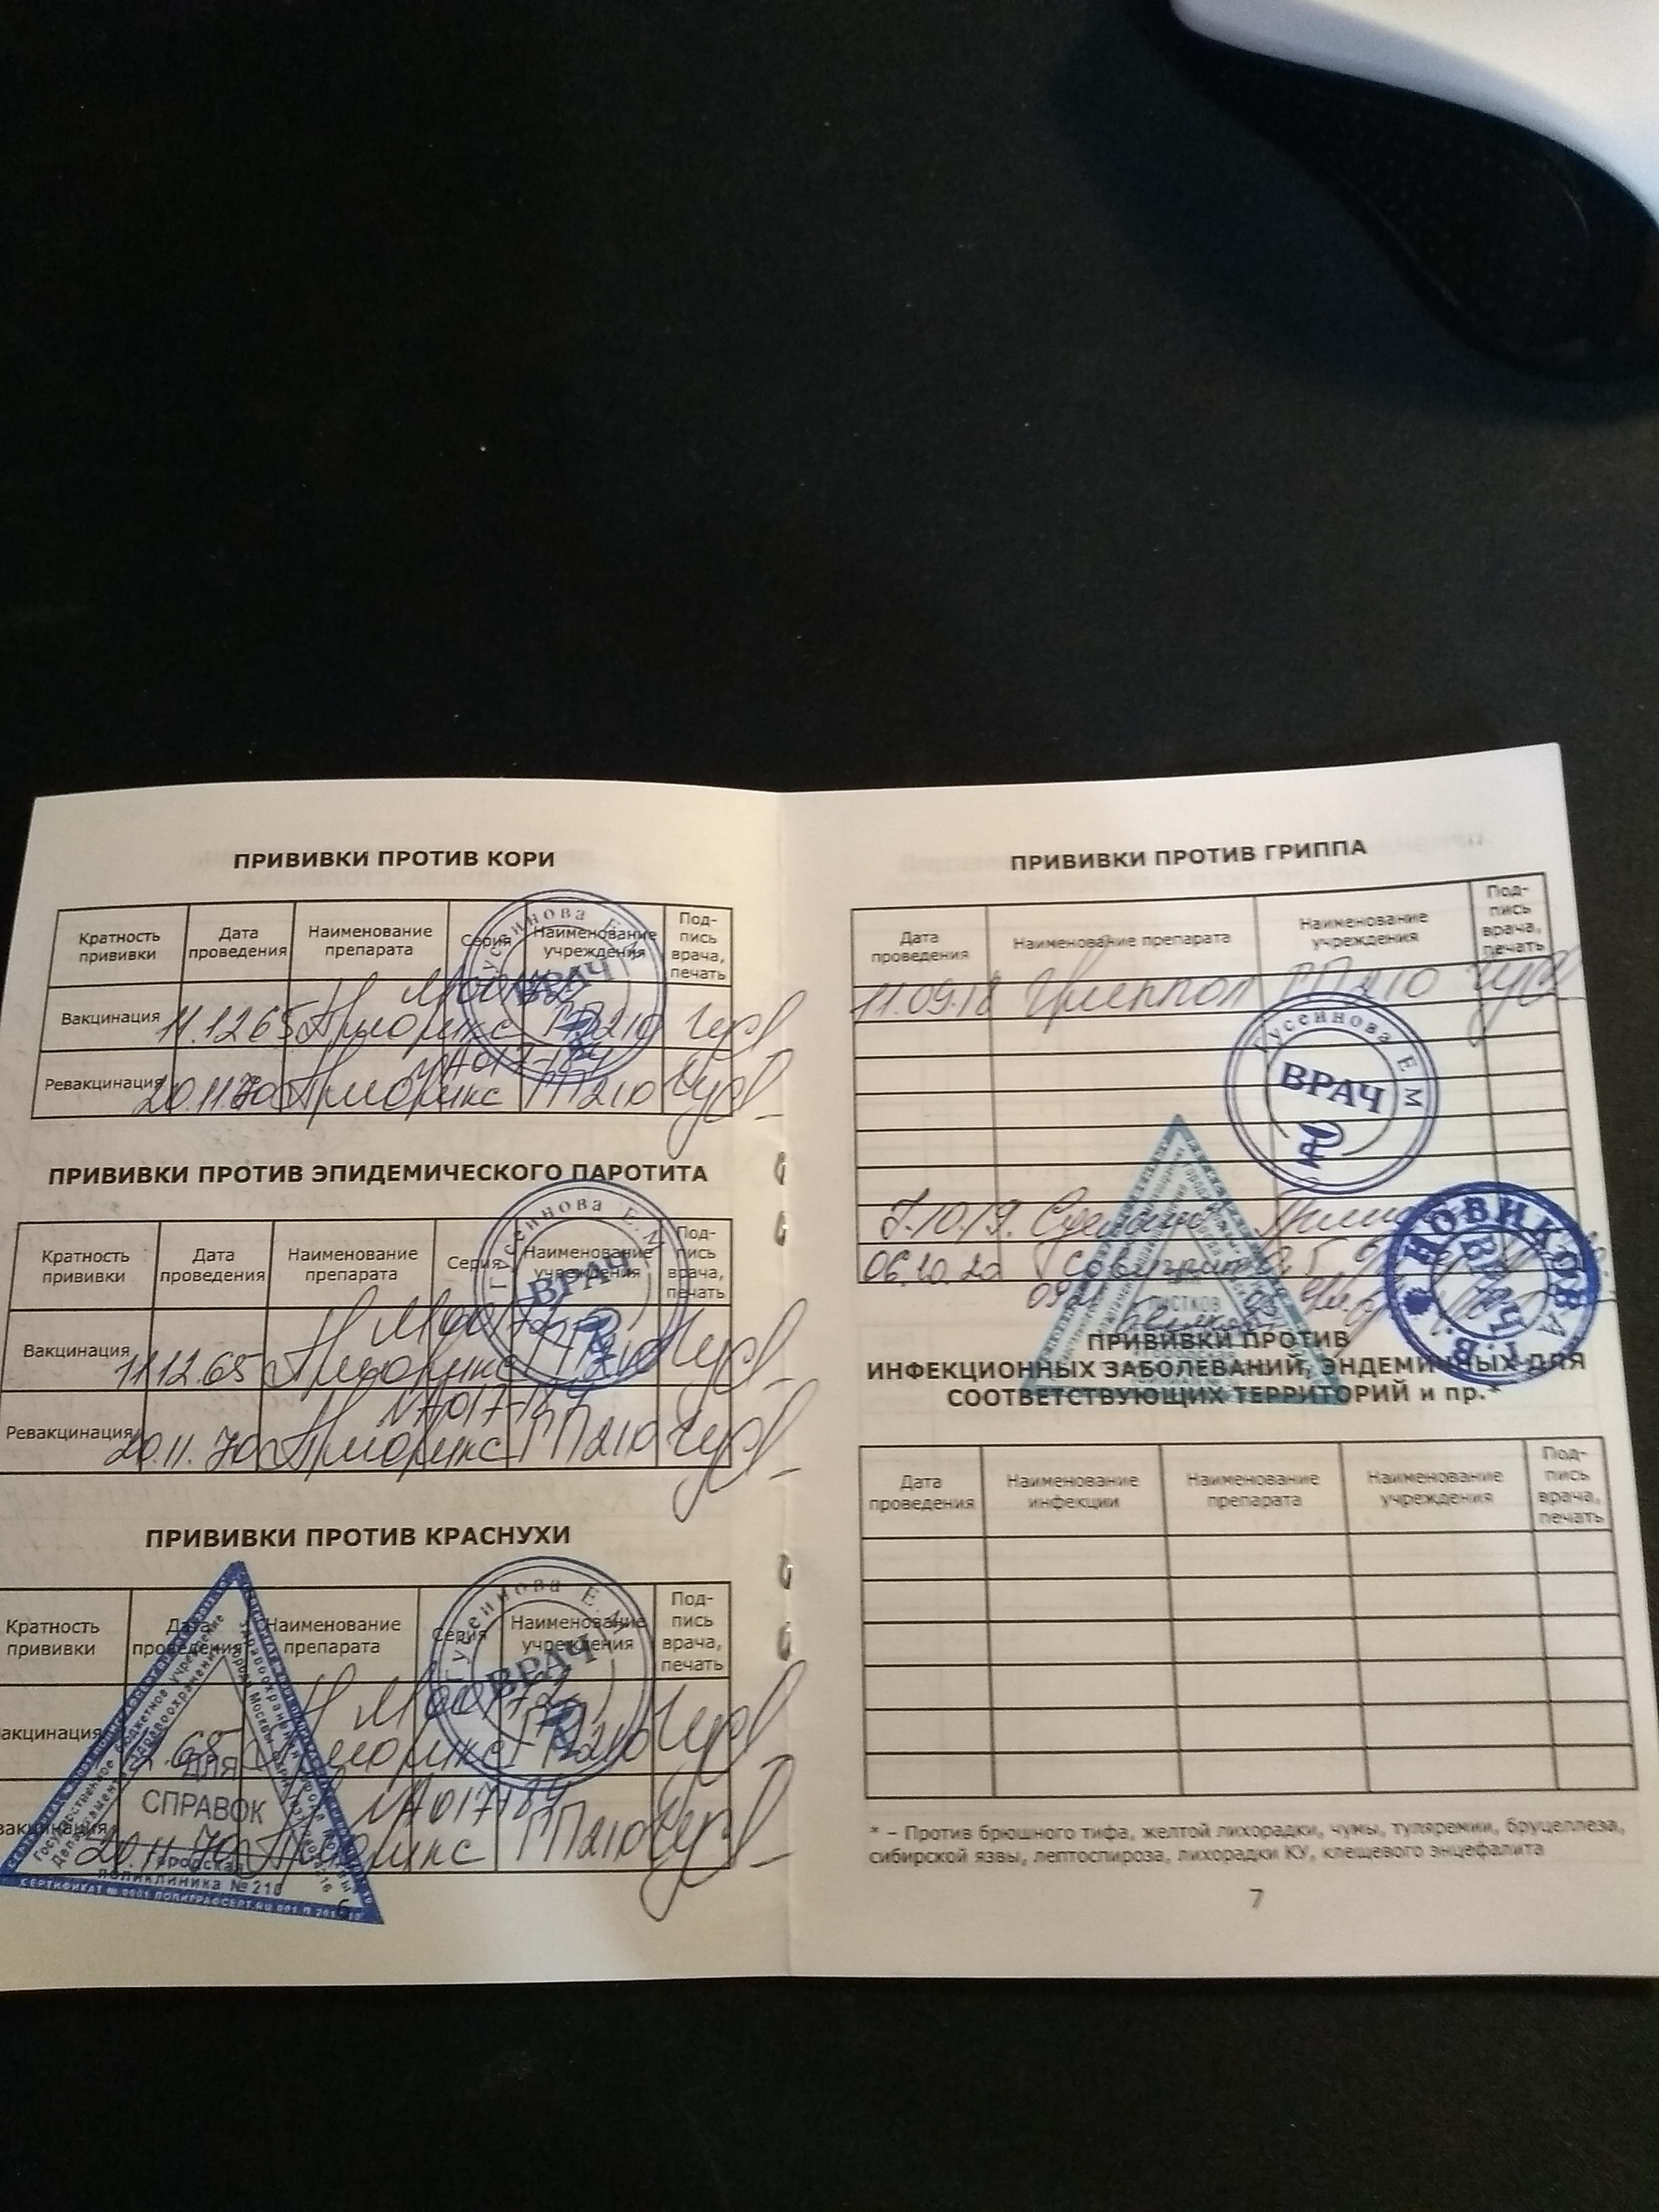 ПРИВИВКИ ПРОТИВ КОРИ
Кратность прививки Дата проведения Наименование препарата Серия Наименование учреждения Под-пись врача, печать
Вакцинация 11.12.65 Приорикс ГП210
Ревакцинация 20.11.70 Приорикс ГП210
Гусейнова Е М
ВРАЧ
ПРИВИВКИ ПРОТИВ ЭПИДЕМИЧЕСКОГО ПАРОТИТА
Кратность прививки Дата проведения Наименование препарата Серия Наименование учреждения Под-пись врача, печать
Вакцинация 11.12.65 Приорикс
Ревакцинация 20.11.70 Приорикс ГП210
Гусейнова Е.М
ВРАЧ
ПРИВИВКИ ПРОТИВ КРАСНУХИ
Кратность прививки Дата проведения Наименование препарата Серия Наименование учреждения Под-пись врача, печать
акцинация .65 Приорикс ГП210
вакцинация 20.11.70 Приорикс ГП210
Гусейнова Е.
ВРАЧ
Государственное бюджетное учреждение здравоохранения
города Москвы
ДЛЯ
СПРАВОК
Городская
поликлиника № 210
6
ПРИВИВКИ ПРОТИВ ГРИППА
Дата проведения Наименование препарата Наименование учреждения Под-пись врача, печать
11.09.18 Гриппол ГП210
Гусейнова Е М
ВРАЧ
7.10.19.
06.10.20 Совигрипп
НОВИКОВА Г.В.
ВРАЧ
ЛИСТКОВ
ПРИВИВКИ ПРОТИВ
ИНФЕКЦИОННЫХ ЗАБОЛЕВАНИЙ, ЭНДЕМИЧНЫХ ДЛЯ
СООТВЕТСТВУЮЩИХ ТЕРРИТОРИЙ и пр.*
Дата проведения Наименование инфекции Наименование препарата Наименование учреждения Под-пись врача, печать
* – Против брюшного тифа, желтой лихорадки, чумы, туляремии, бруцеллеза,
сибирской язвы, лептоспироза, лихорадки КУ, клещевого энцефалита
7